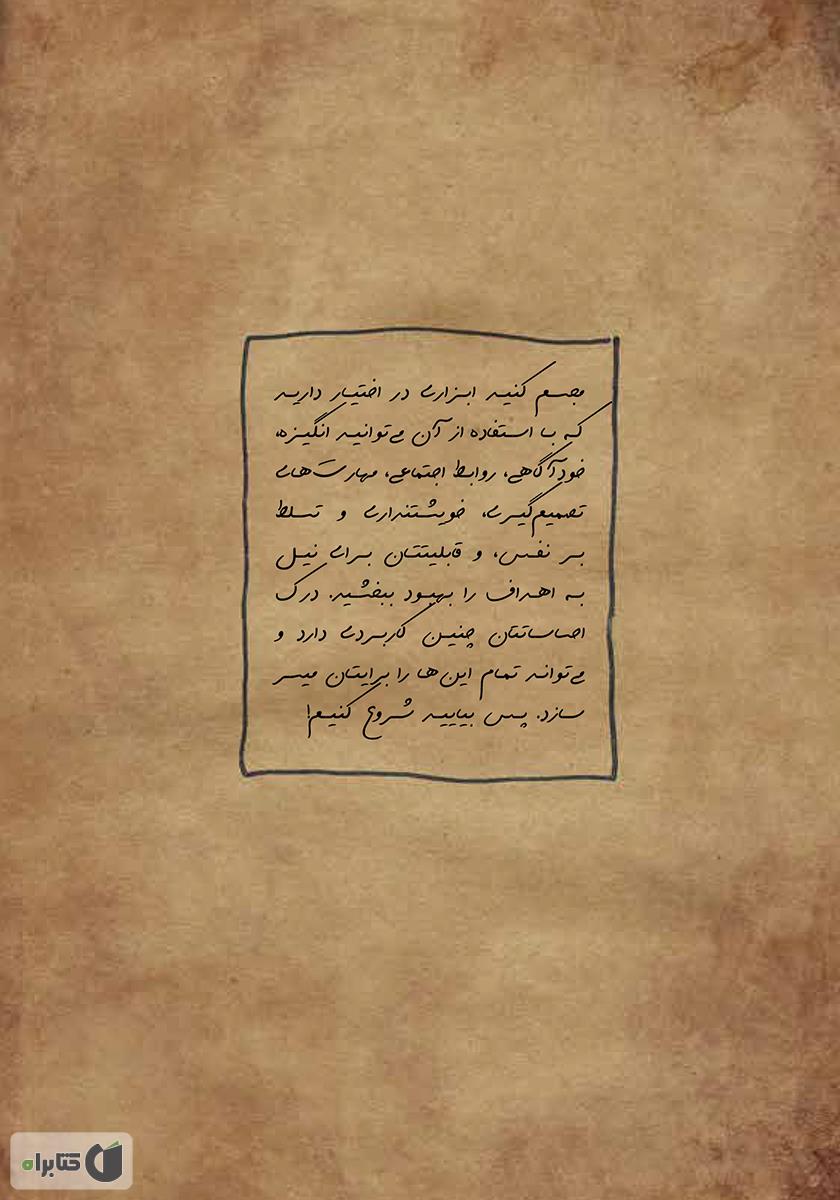 مجسم کنید ابزاری در اختیار دارید
که با استفاده از آن می‌توانید انگیزه،
خودآگاهی، روابط اجتماعی، مهارت‌های
تصمیم‌گیری، خویشتنداری و تسلط
بر نفس، و قابلیتتان برای نیل
به اهداف را بهبود ببخشید. درک
احساساتتان چنین کاربردی دارد و
می‌تواند تمام این‌ها را برایتان میسر
سازد. پس بیایید شروع کنیم!
کتابراه